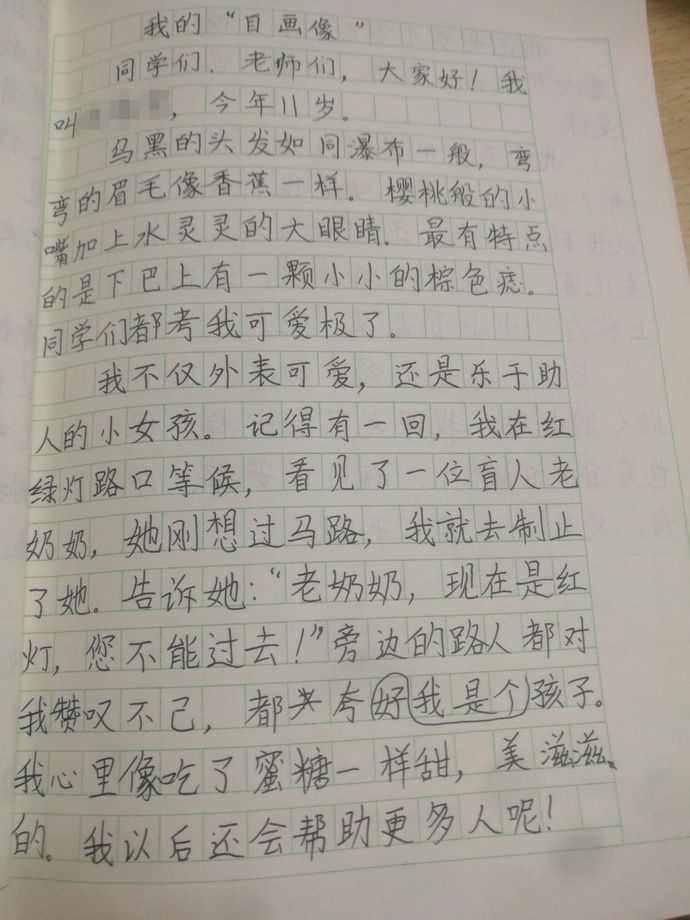 我的“自画像”
同学们、老师们，大家好！我
叫，今年11岁。
乌黑的头发如同瀑布一般，弯
弯的眉毛像香蕉一样。樱桃般的小
嘴加上水灵灵的大眼睛。最有特点
的是下巴上有一颗小小的棕色痣。
同学们都考我可爱极了。
我不仅外表可爱，还是乐于助
人的小女孩。记得有一回，我在红
绿灯路口等候，看见了一位盲人老
奶奶，她刚想过马路，我就去制止
了她。告诉她：“老奶奶，现在是红
灯，您不能过去！”旁边的路人都对
我赞叹不己，都夸好我是个孩子。
我心里像吃了蜜糖一样甜，美滋滋
的。我以后还会帮助更多人呢！